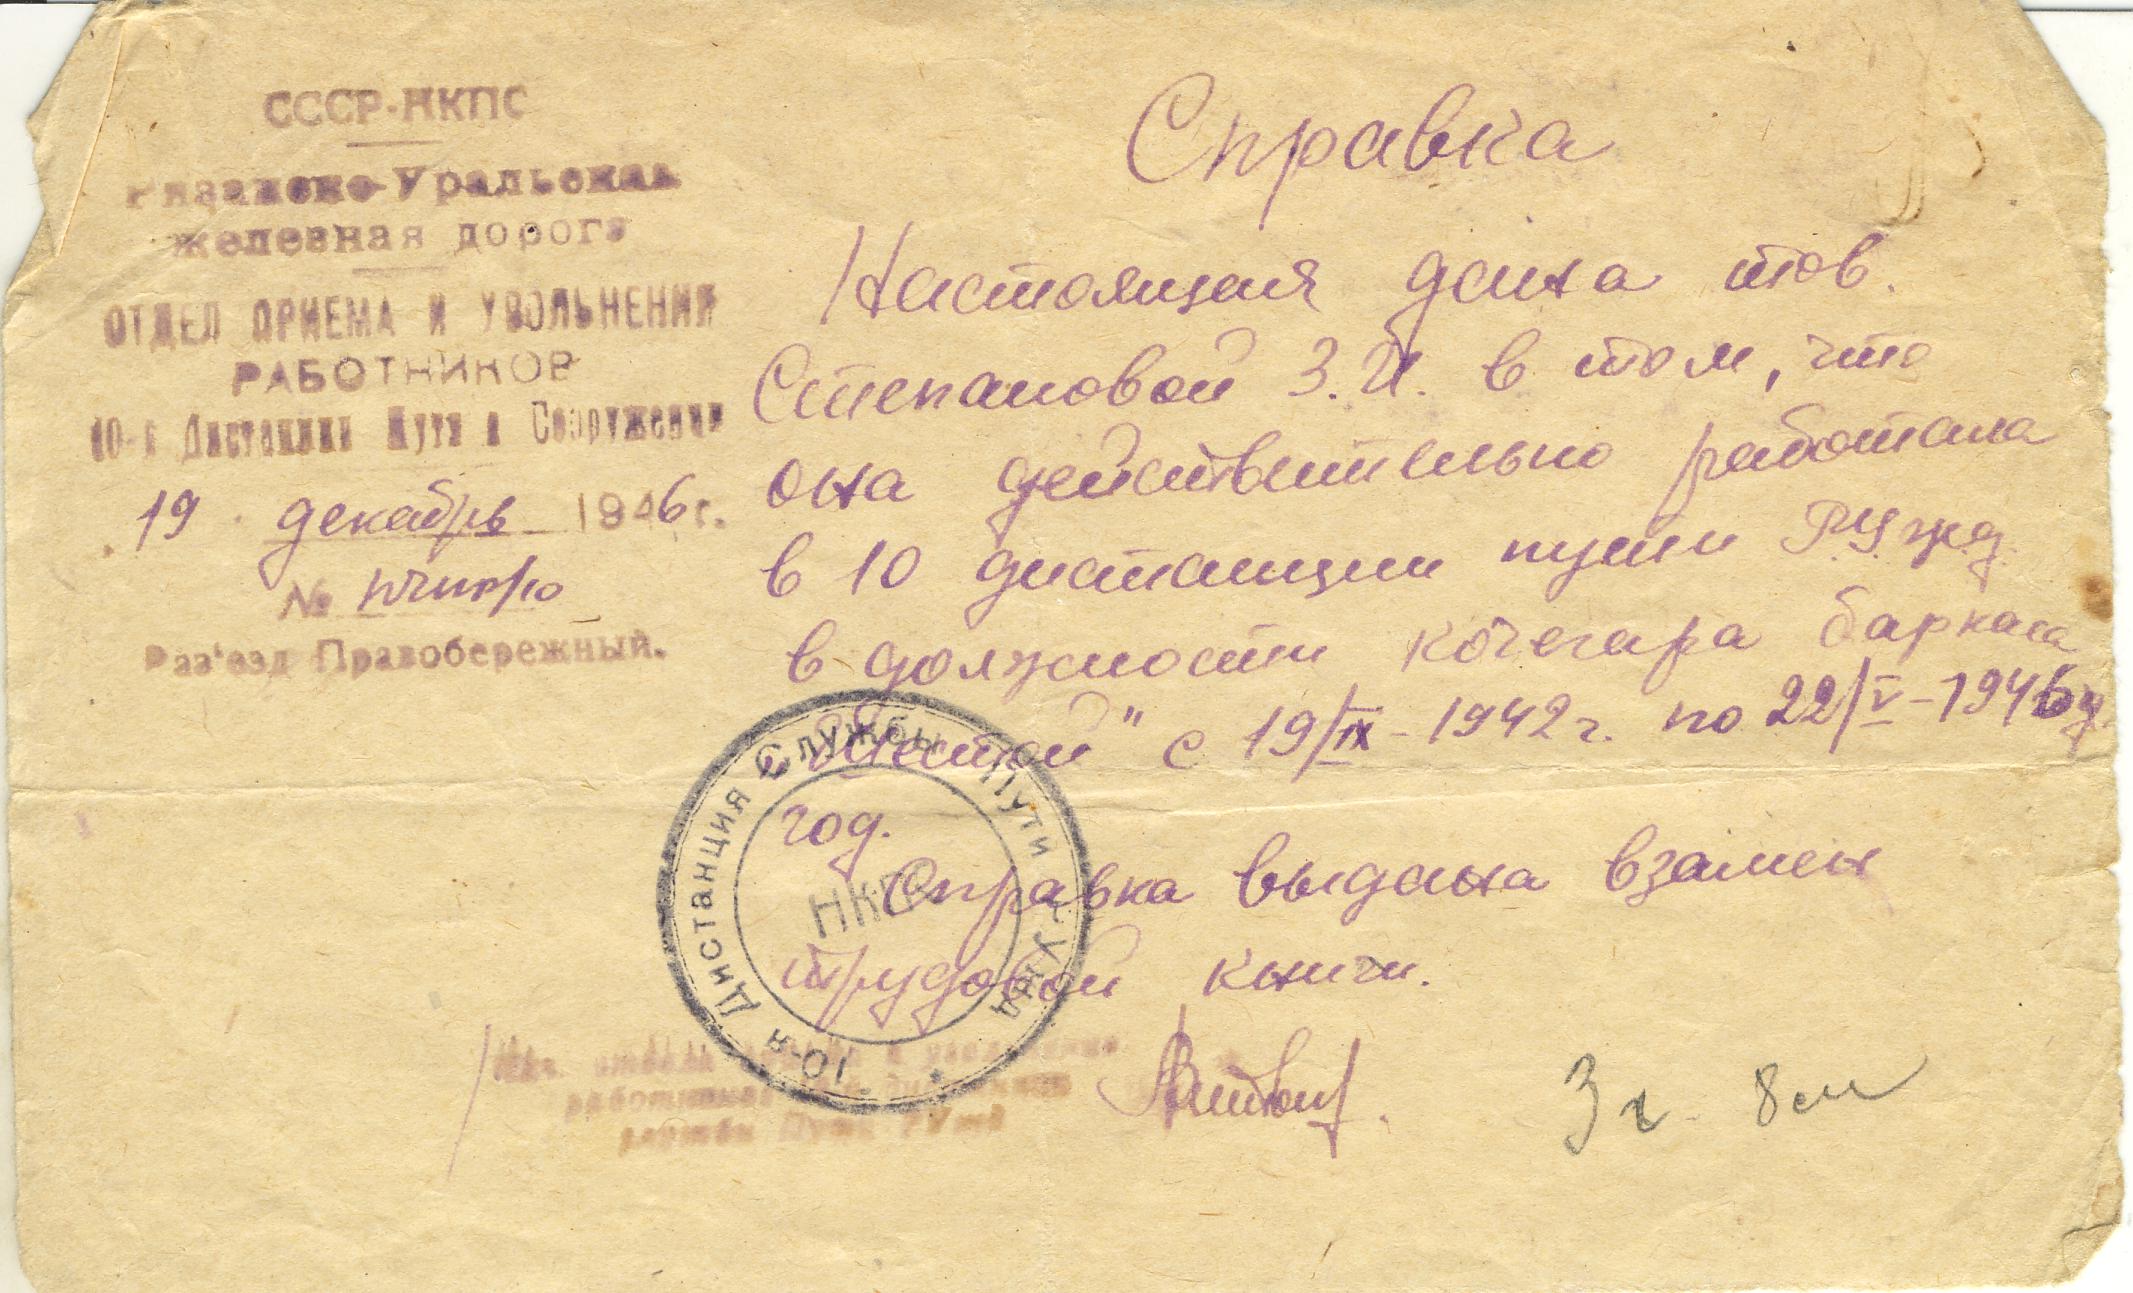 СССР-НКПС
Рязанско-Уральская
железная дорога
ОТДЕЛ ПРИЕМА И УВОЛЬНЕНИЯ
РАБОТНИКОВ
10-я Дистанции Пути и Сооружения
19 декабрь 1946 г.
№
Раз'езд Правобережный.
Справка
Настоящая дана тов.
Степановой З.И. в том, что
она действительно работала
в 10 дистанции пути РУжд
в должности кочегара баркаса
" с 19/IX-1942 г. по 22/V-1946
год.
Справка выдана взамен
трудовой книги.
10-я Дистанция Службы Пути Р-У жд
НКПС
Нач. отдела приема и увольнения
работников 10-й дистанции
службы Пути РУжд
3 г. 8 м